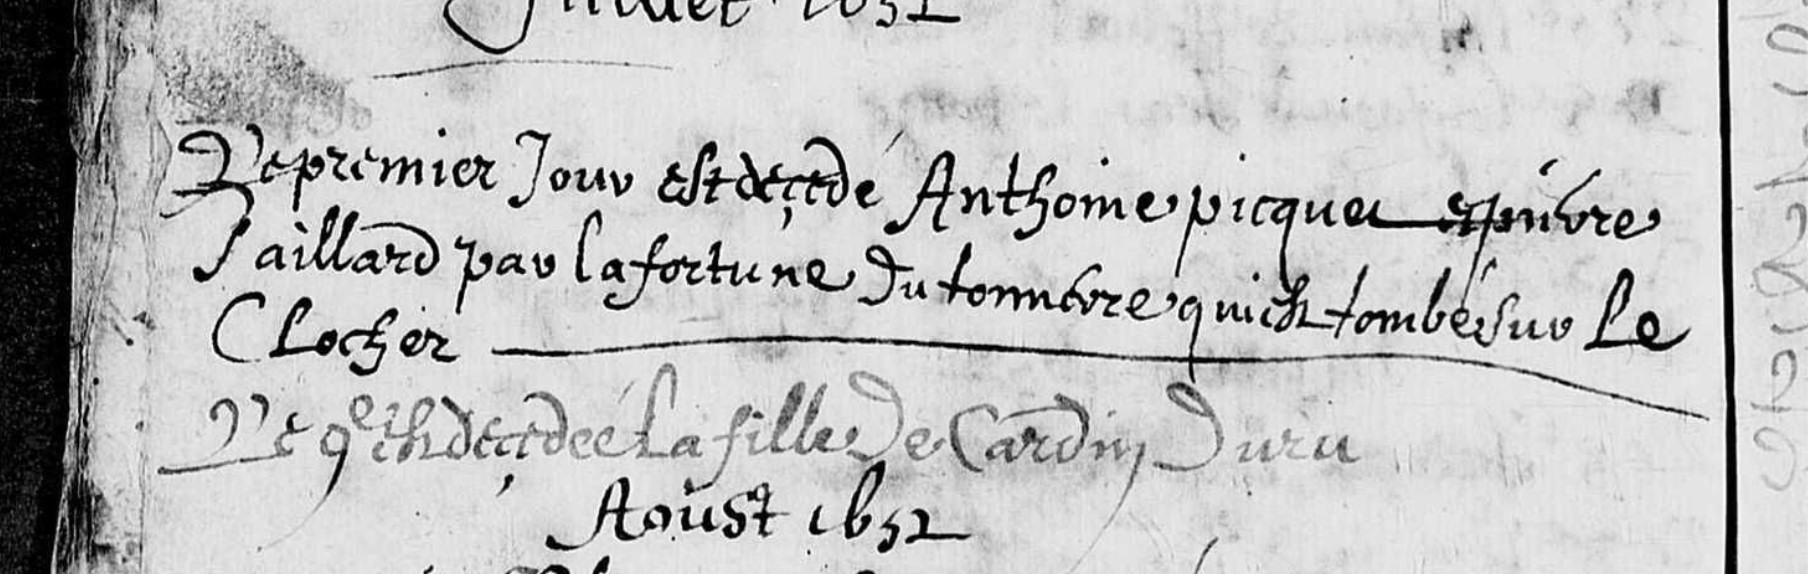 Juillet 1632
Le premier Jour est deçedé Anthoine picquet et pierre
Paillard par la fortune du tonnerre qui est tombé sur le
Clocher
Le 9e est deçedeé La fille De Cardin Duru
Aoust 1632